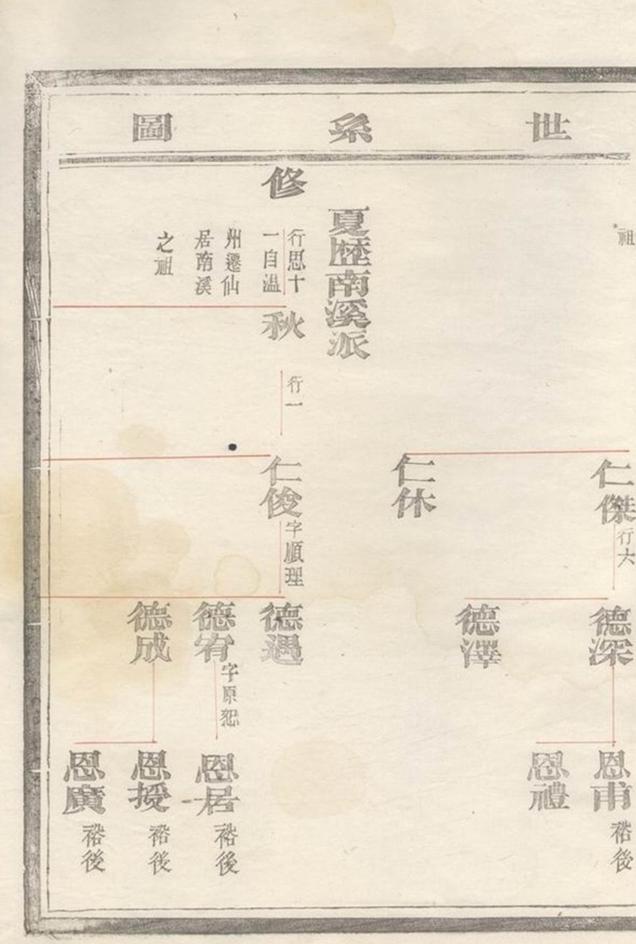 世系圖
祖
仁傑
行六
德深
恩甫
裕後
恩禮
德澤
仁休
夏歷南溪派
修
行思十
一自溫
州遷仙
居南溪
之祖
秋
行一
仁俊
字順理
德遇
德宥
字原恕
恩居
裕後
德成
恩授
裕後
恩廣
裕後